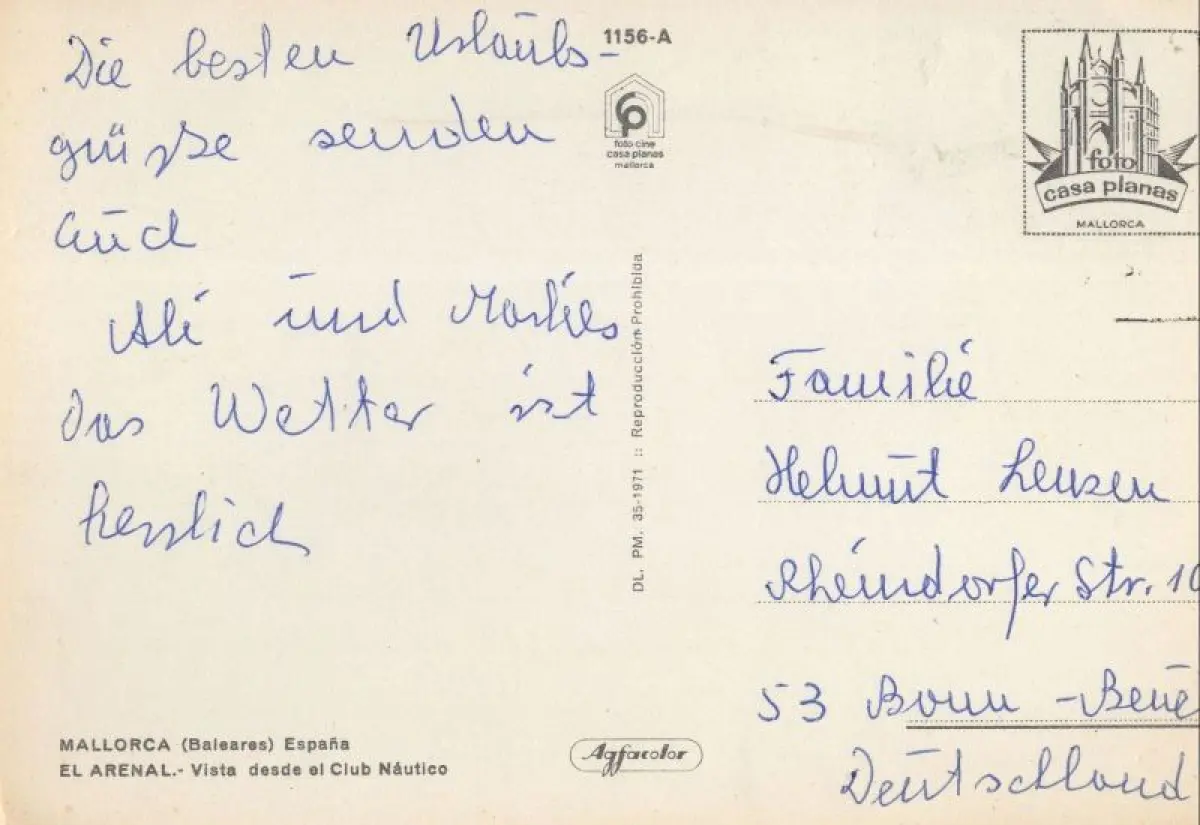 Die besten Urlaubs-
grüße senden
Euch
Ali und Marlies
Das Wetter ist
herrlich
MALLORCA (Baleares) España
EL ARENAL.- Vista desde el Club Náutico
1156-A
foto cine
casa planas
mallorca
DL. PM. 35-1971 :: Reproducción Prohibida
Agfacolor
foto
casa planas
MALLORCA
Familie
Helmut Lenzen
Rheindorfer Str. 10
53 Bonn - Beue
Deutschland